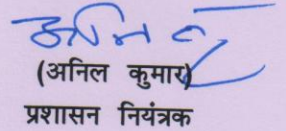 (अनिल कुमार)
प्रशासन नियंत्रक